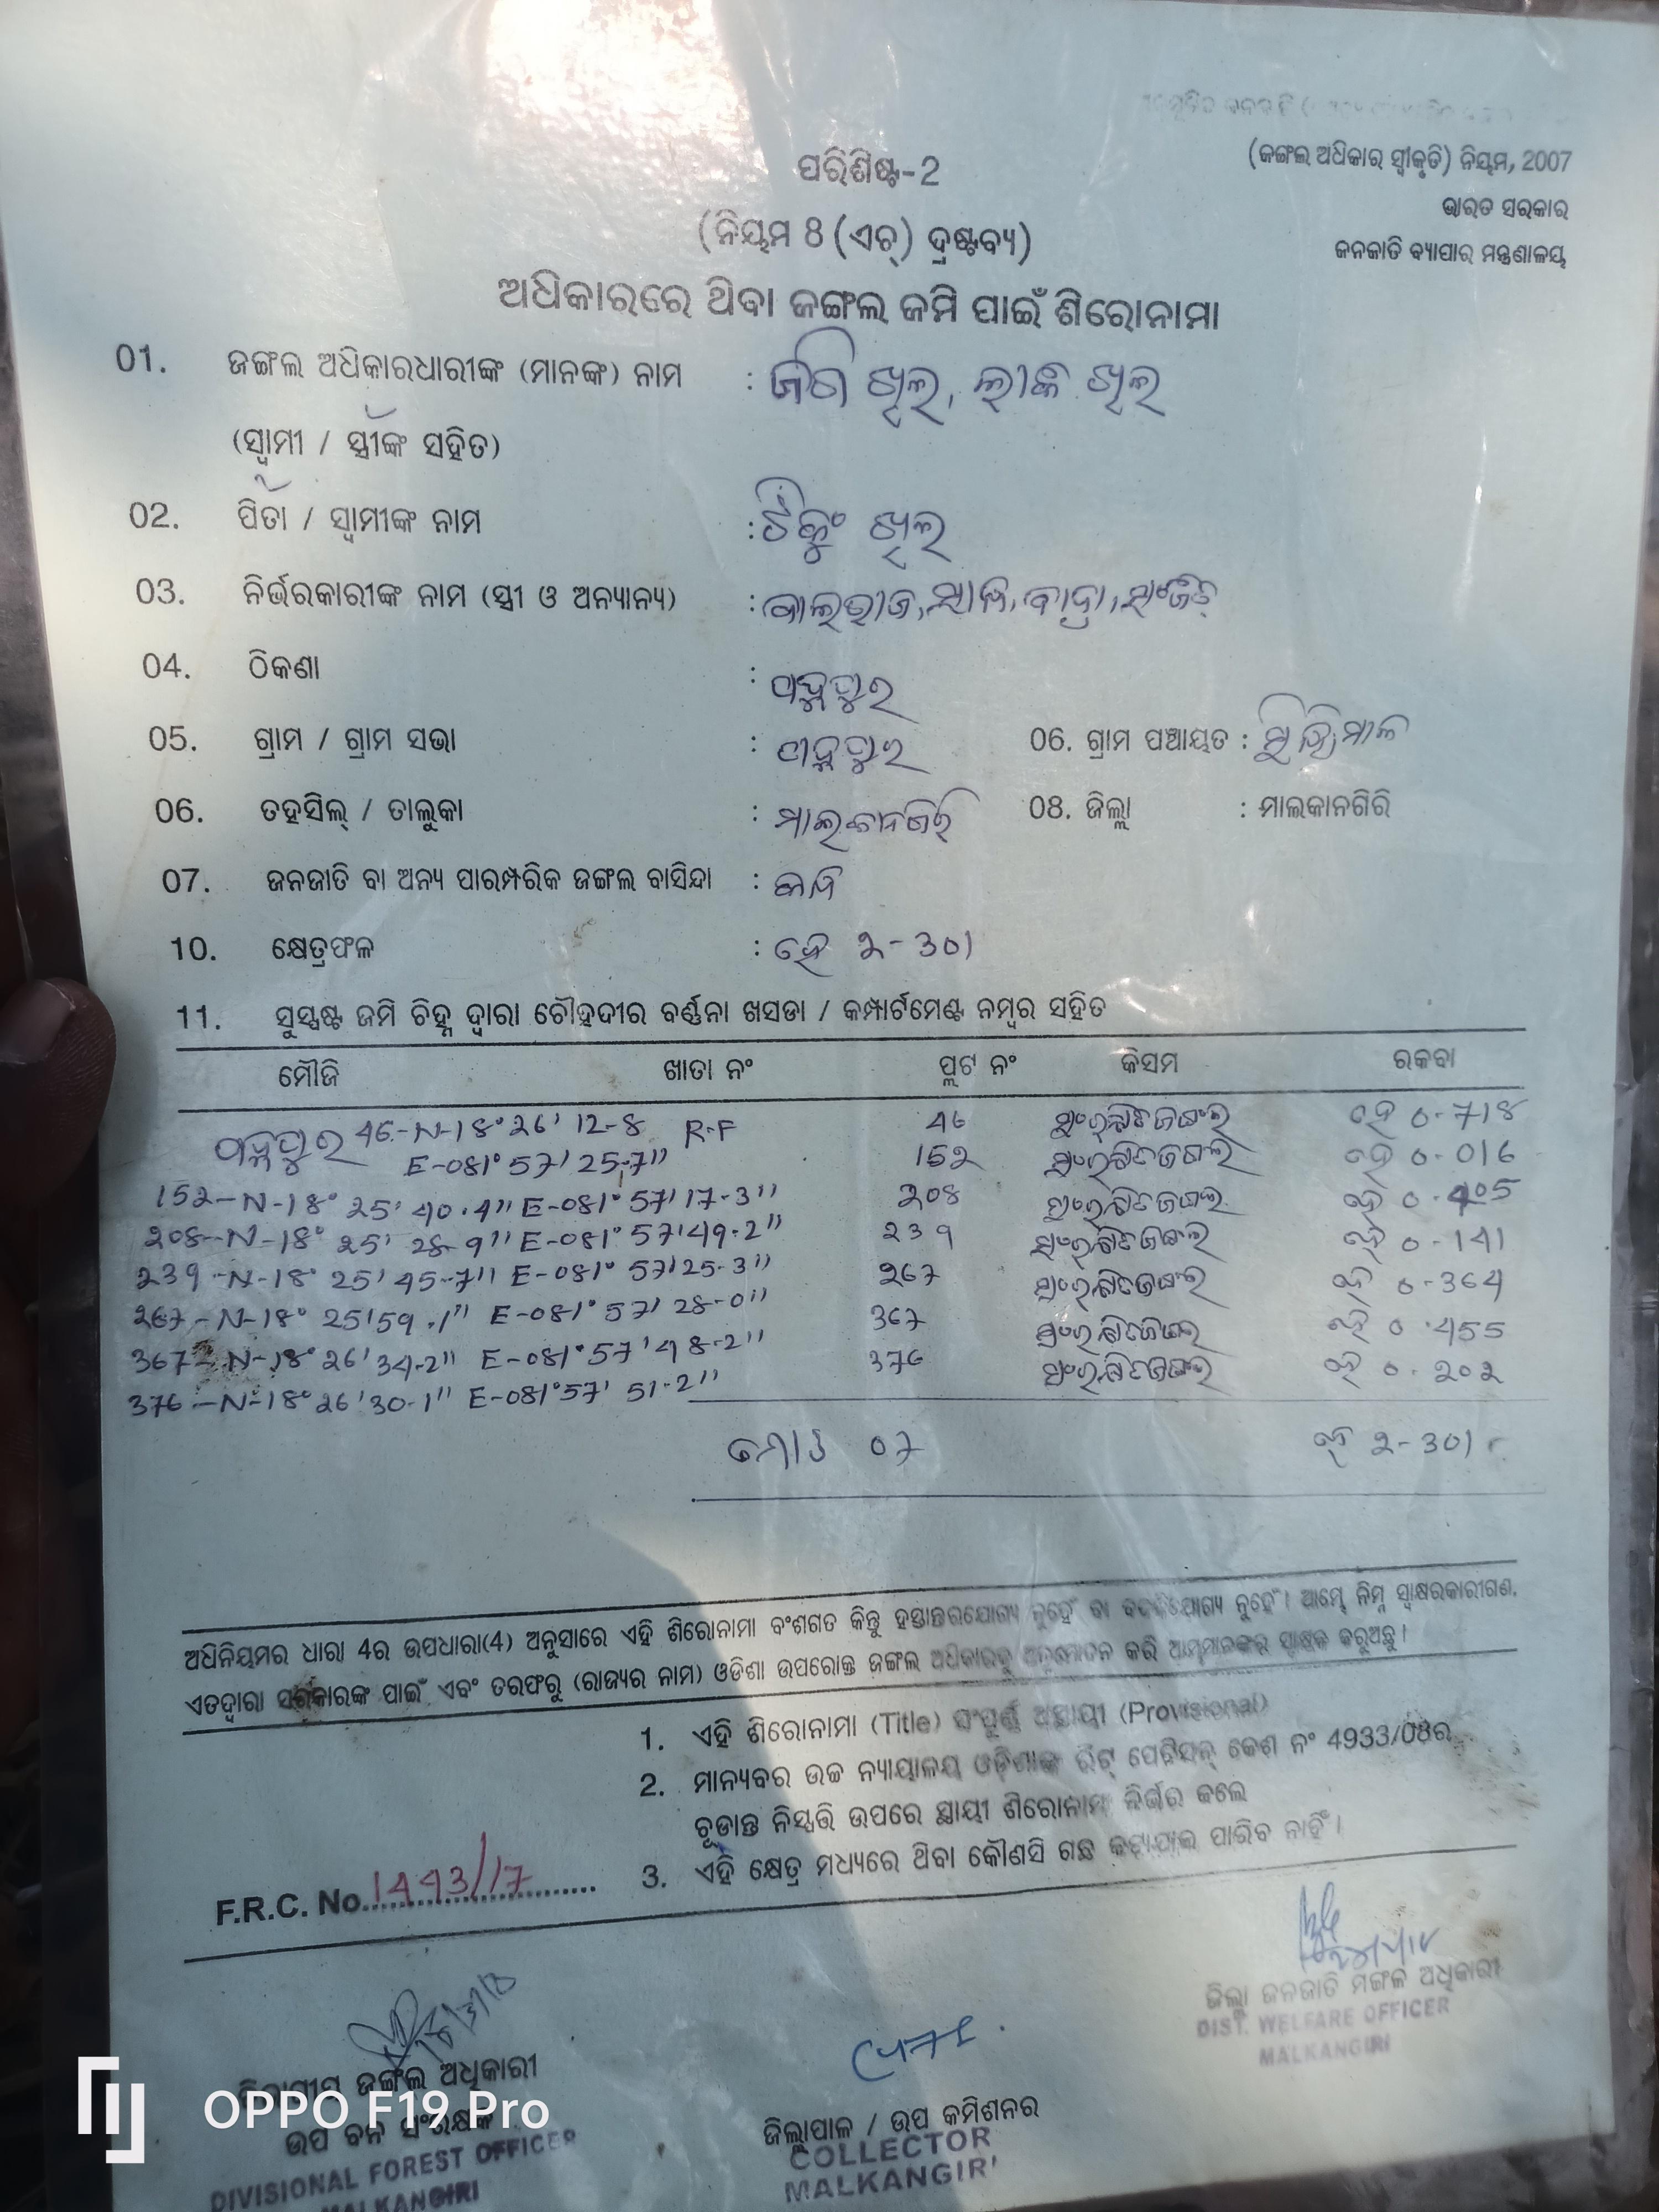 (ଜଙ୍ଗଲ ଅଧିକାର ସ୍ୱୀକୃତି) ନିୟମ, 2007
ଭାରତ ସରକାର
ଜନଜାତି ବ୍ୟାପାର ମନ୍ତ୍ରଣାଳୟ
ପରିଶିଷ୍ଟ-2
(ନିୟମ 8 (ଏଚ୍) ଦ୍ରଷ୍ଟବ୍ୟ)
ଅଧିକାରରେ ଥିବା ଜଙ୍ଗଲ ଜମି ପାଇଁ ଶିରୋନାମା
01. ଜଙ୍ଗଲ ଅଧିକାରଧାରୀଙ୍କ (ମାନଙ୍କ) ନାମ : ଜିଗ ଖିଲ,
(ସ୍ୱାମୀ / ସ୍ତ୍ରୀଙ୍କ ସହିତ)
02. ପିତା / ସ୍ୱାମୀଙ୍କ ନାମ : ଖିଲ
03. ନିର୍ଭରକାରୀଙ୍କ ନାମ (ସ୍ତ୍ରୀ ଓ ଅନ୍ୟାନ୍ୟ) :
04. ଠିକଣା :
05. ଗ୍ରାମ / ଗ୍ରାମ ସଭା : 06. ଗ୍ରାମ ପଞ୍ଚାୟତ :
06. ତହସିଲ୍ / ତାଲୁକା : ମାଲକାନଗିରି 08. ଜିଲ୍ଲା : ମାଲକାନଗିରି
07. ଜନଜାତି ବା ଅନ୍ୟ ପାରମ୍ପରିକ ଜଙ୍ଗଲ ବାସିନ୍ଦା :
10. କ୍ଷେତ୍ରଫଳ : ହେ 2-301
11. ସୁସ୍ପଷ୍ଟ ଜମି ଚିହ୍ନ ଦ୍ୱାରା ଚୌହଦୀର ବର୍ଣ୍ଣନା ଖସଡା / କମ୍ପାର୍ଟମେଣ୍ଟ ନମ୍ବର ସହିତ
ମୌଜି ଖାତା ନଂ ପ୍ଲଟ ନଂ କିସମ ରକବା
46-N-18° 26' 12-8 R-F 46 ସଂରକ୍ଷିତ ଜଙ୍ଗଲ ହେ 0-718
E-081° 57' 25-7" 152 ସଂରକ୍ଷିତ ଜଙ୍ଗଲ ହେ 0-016
152-N-18° 25' 40.4" E-081° 57' 17-3" 208 ସଂରକ୍ଷିତ ଜଙ୍ଗଲ ହେ 0.405
208-N-18° 25' 28-9" E-081° 57' 49-2" 239 ସଂରକ୍ଷିତ ଜଙ୍ଗଲ ହେ 0-141
239-N-18° 25' 45-7" E-081° 57' 25-3" 267 ସଂରକ୍ଷିତ ଜଙ୍ଗଲ ହେ 0-364
267-N-18° 25' 59.1" E-081° 57' 28-0" 367 ସଂରକ୍ଷିତ ଜଙ୍ଗଲ ହେ 0.455
367-N-18° 26' 34-2" E-081° 57' 48-2" 376 ସଂରକ୍ଷିତ ଜଙ୍ଗଲ ହେ 0-202
376-N-18° 26' 30-1" E-081° 57' 51-2"
ମୋଟ 07 ହେ 2-301
ଅଧିନିୟମର ଧାରା 4ର ଉପଧାରା(4) ଅନୁସାରେ ଏହି ଶିରୋନାମା ବଂଶଗତ କିନ୍ତୁ ହସ୍ତାନ୍ତରଯୋଗ୍ୟ ନୁହେଁ ବା ବଦଳିଯୋଗ୍ୟ ନୁହେଁ । ଆମ୍ଭେ ନିମ୍ନ ସ୍ୱାକ୍ଷରକାରୀଗଣ,
ଏତଦ୍ୱାରା ସରକାରଙ୍କ ପାଇଁ ଏବଂ ତରଫରୁ (ରାଜ୍ୟର ନାମ) ଓଡିଶା ଉପରୋକ୍ତ ଜଙ୍ଗଲ ଅଧିକାରକୁ ଅନୁମୋଦନ କରି ଆମ୍ଭମାନଙ୍କର ସ୍ୱାକ୍ଷର କରୁଅଛୁ ।
1. ଏହି ଶିରୋନାମା (Title) ସଂପୂର୍ଣ୍ଣ ଅସ୍ଥାୟୀ (Provisional)
2. ମାନ୍ୟବର ଉଚ୍ଚ ନ୍ୟାୟାଳୟ ଓଡ଼ିଶାଙ୍କ ରିଟ୍ ପେଟିସନ୍ କେଶ ନଂ 4933/08ର
ଚୂଡାନ୍ତ ନିସ୍ପତ୍ତି ଉପରେ ସ୍ଥାୟୀ ଶିରୋନାମା ନିର୍ଭର କଲେ
3. ଏହି କ୍ଷେତ୍ର ମଧ୍ୟରେ ଥିବା କୌଣସି ଗଛ କଟାଯାଇ ପାରିବ ନାହିଁ ।
F.R.C. No. 1493/17
ଜିଲ୍ଲା ଜନଜାତି ମଙ୍ଗଳ ଅଧିକାରୀ
DIST. WELFARE OFFICER
MALKANGIRI
ବିଭାଗୀୟ ଜଙ୍ଗଲ ଅଧିକାରୀ
ଉପ ବନ ସଂରକ୍ଷକ
DIVISIONAL FOREST OFFICER
MALKANGIRI
ଜିଲ୍ଲାପାଳ / ଉପ କମିଶନର
COLLECTOR
MALKANGIRI
OPPO F19 Pro